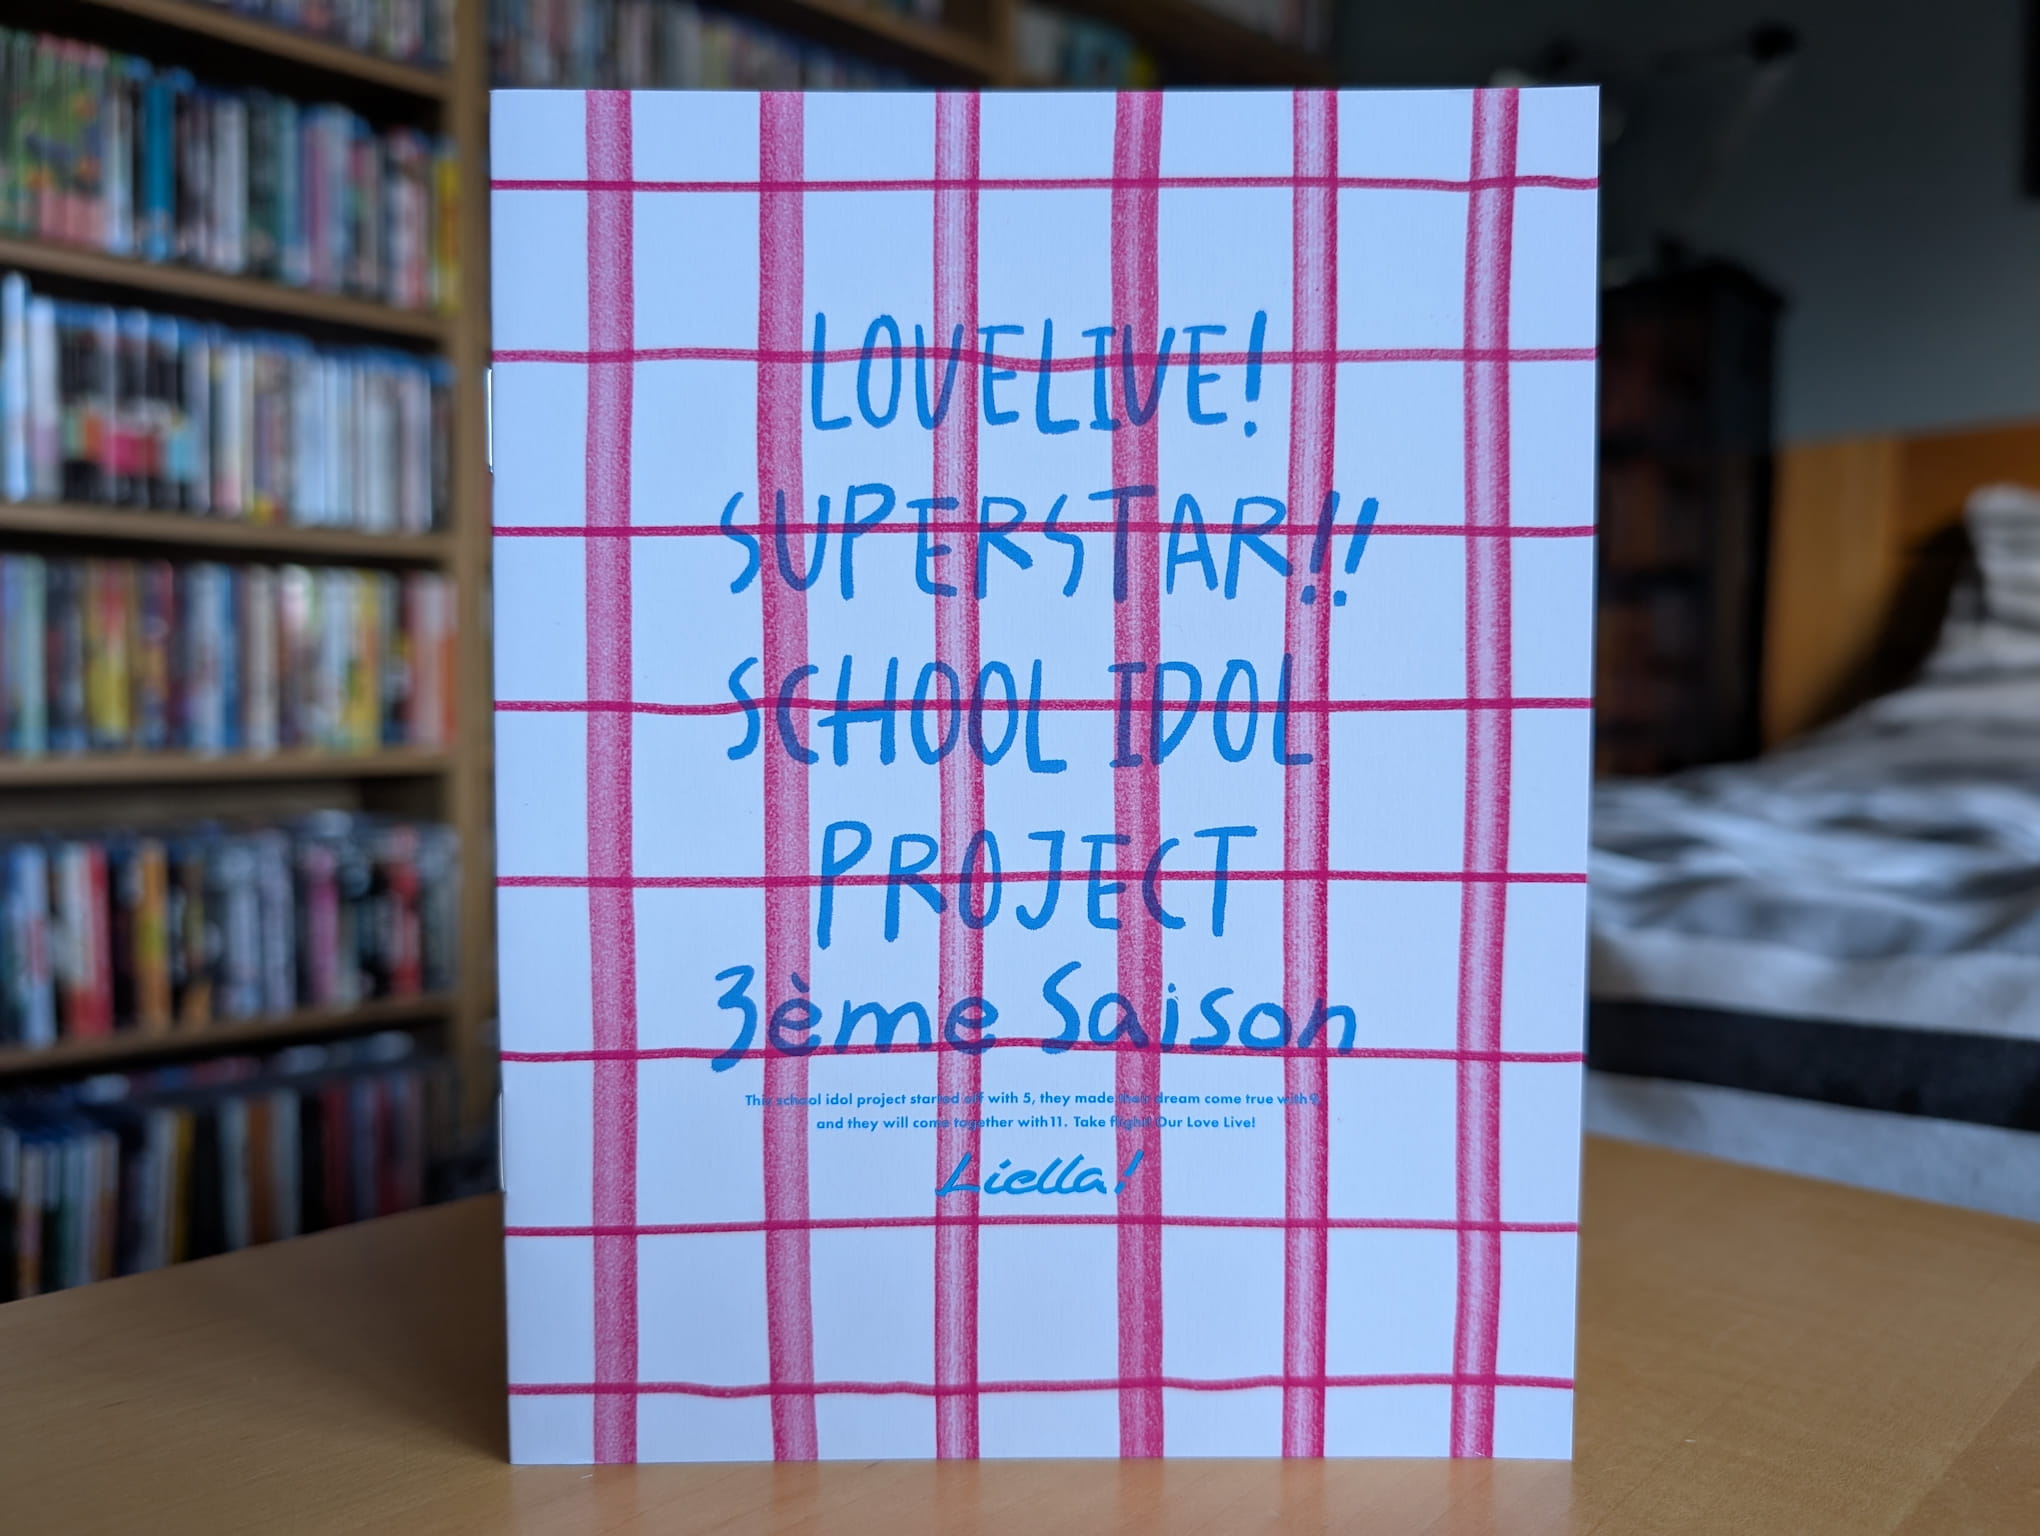 LOVELIVE!
SUPERSTAR!!
SCHOOL IDOL
PROJECT
3ème Saison
This school idol project started off with 5, they made their dream come true with 9,
and they will come together with 11. Take flight! Our Love Live!
Liella!